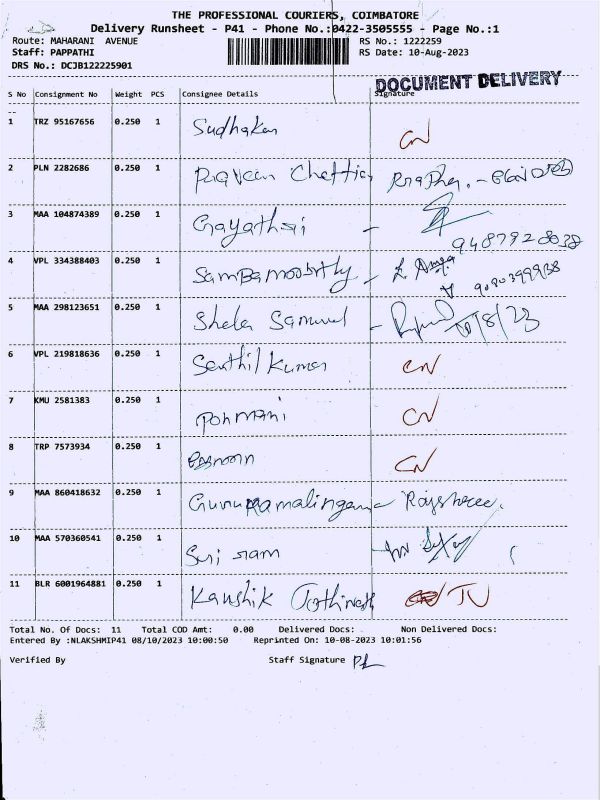 THE PROFESSIONAL COURIERS, COIMBATORE
Delivery Runsheet - P41 - Phone No.:0422-3505555 - Page No.:1
Route: MAHARANI AVENUE RS No.: 1222259
Staff: PAPPATHI RS Date: 10-Aug-2023
DRS No.: DCJB122225901
DOCUMENT DELIVERY
S No Consignment No Weight PCS Consignee Details Signature
1 TRZ 95167656 0.250 1 Sudhakar CN
2 PLN 2282686 0.250 1 Praveen Chettiar
3 MAA 104874389 0.250 1 Gayathri -
9487928038
4 VPL 334388403 0.250 1 Sambamoorthy -
9080399938
5 MAA 298123651 0.250 1 Shela Samuel - 10/8/23
6 VPL 219818636 0.250 1 Senthil Kumar CN
7 KMU 2581383 0.250 1 Ponmani CN
8 TRP 7573934 0.250 1 CN
9 MAA 860418632 0.250 1 Rajshree.
10 MAA 570360541 0.250 1 Sri ram
11 BLR 6001964881 0.250 1 Kaushik Jothinath
Total No. Of Docs: 11 Total COD Amt: 0.00 Delivered Docs: Non Delivered Docs:
Entered By :NLAKSHMIP41 08/10/2023 10:00:50 Reprinted On: 10-08-2023 10:01:56
Verified By Staff Signature